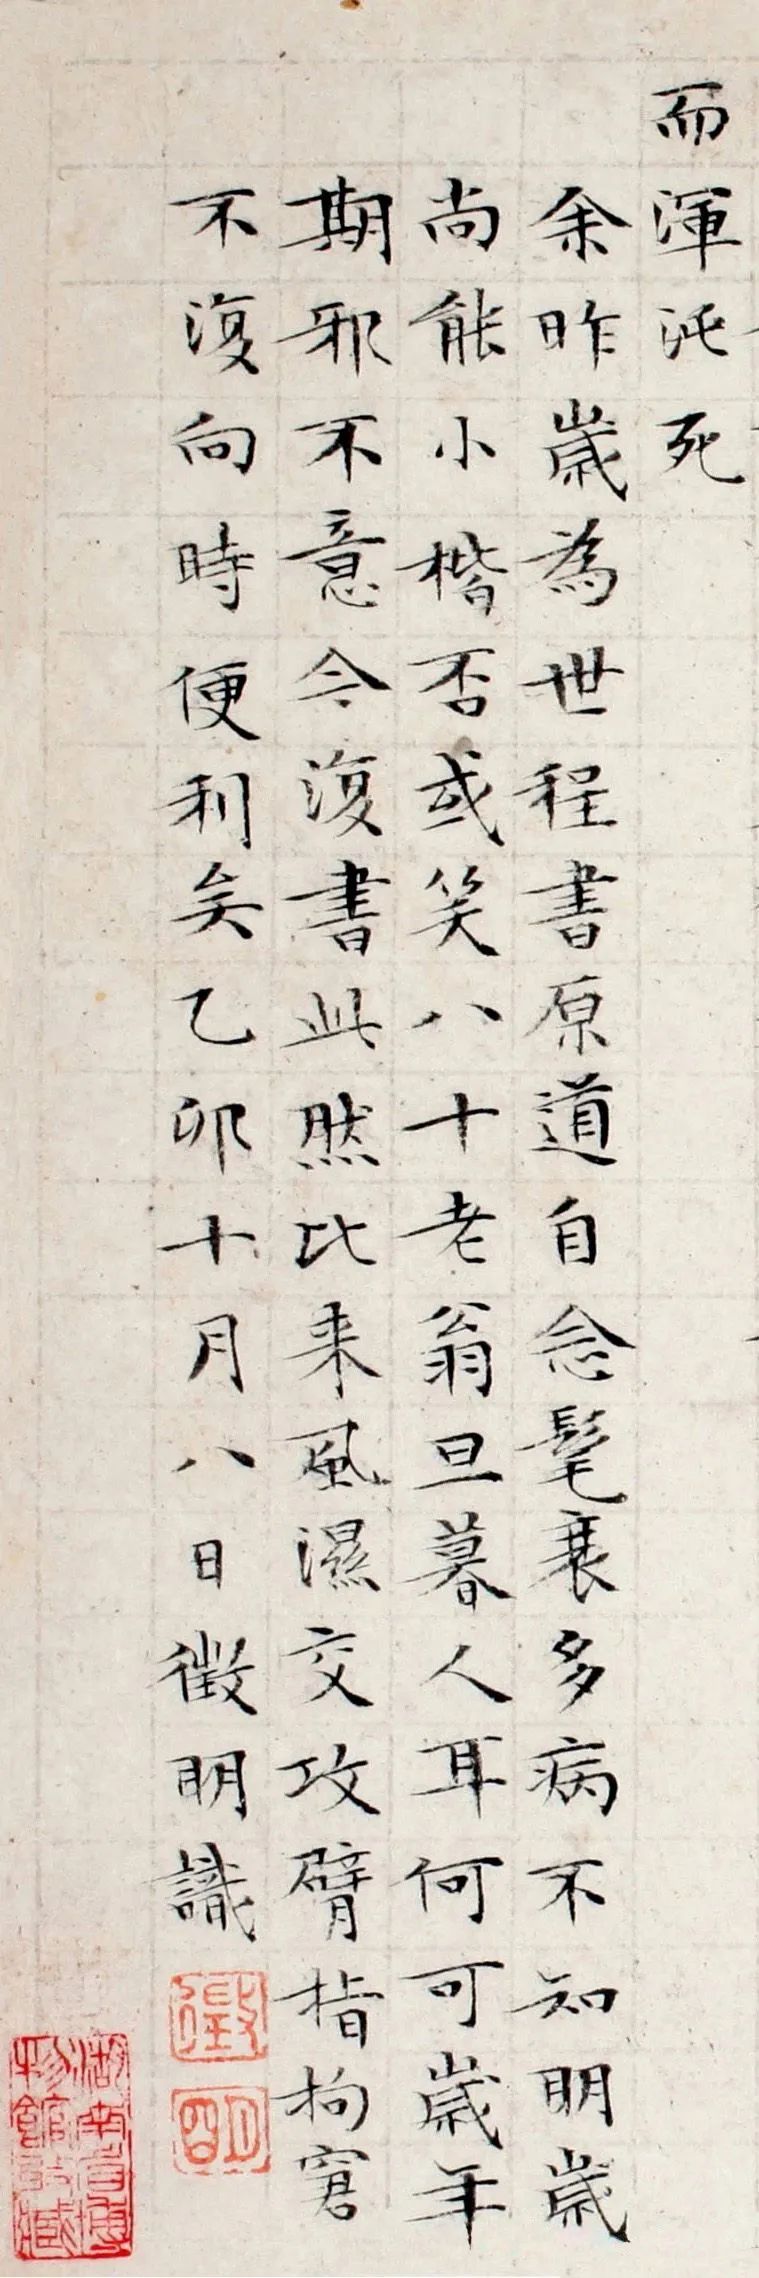 而渾沌死
余昨歲為世程書原道自念髦衰多病不知明歲
尚能小楷否或笑八十老翁旦暮人耳何可歲年
期邪不意今復書此然比來風濕交攻臂指拘窘
不復向時便利矣乙卯十月八日徵明識
徵
明
湖南省博
物館收藏